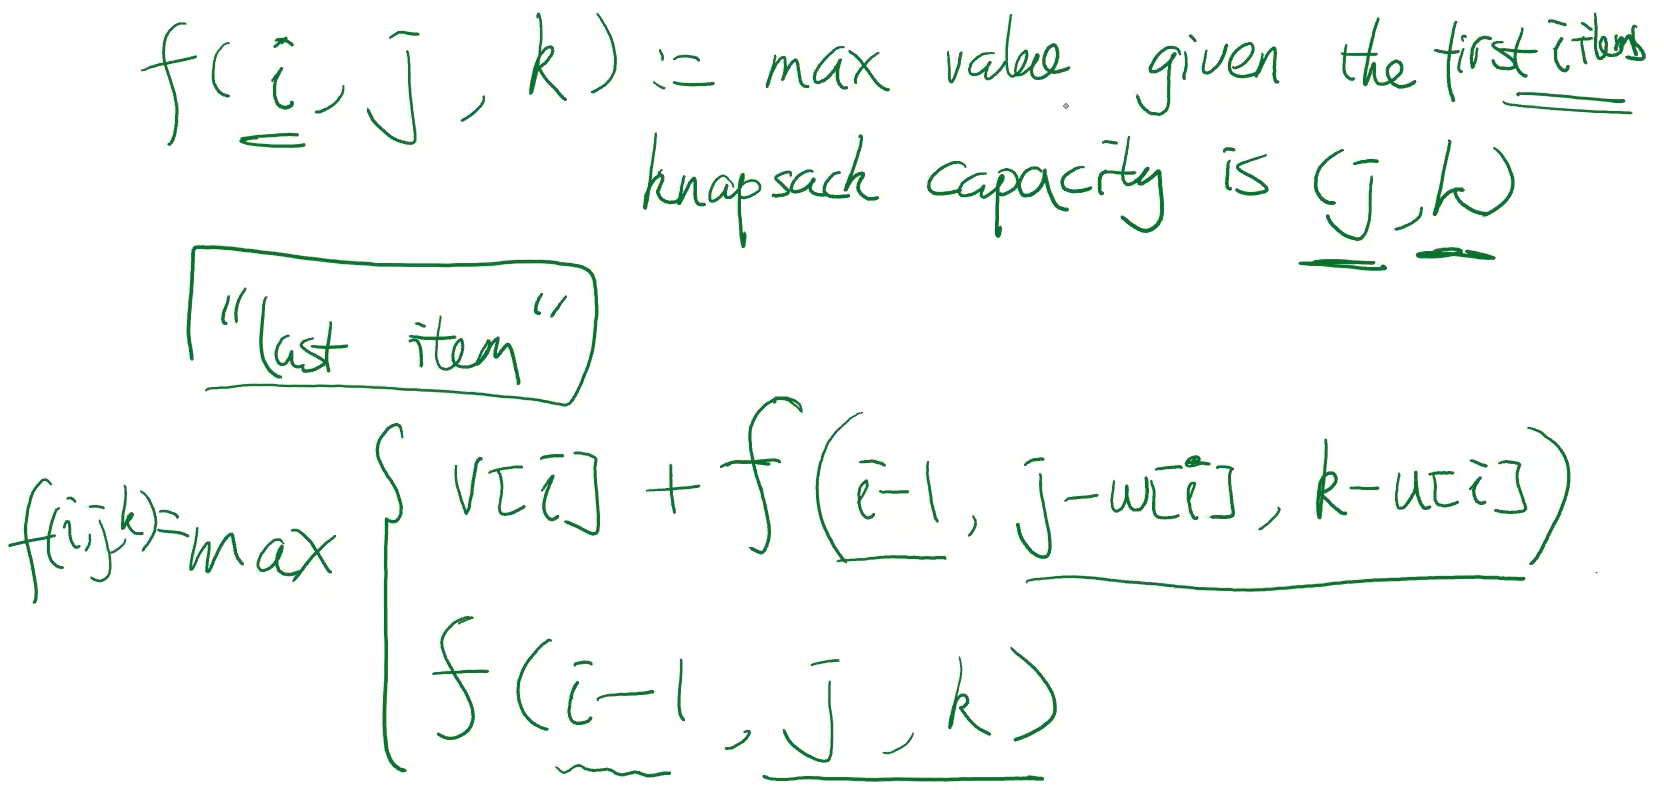 f(i, j, k) := max value given the first i items
knapsack capacity is (j, k)
"last item"
f(i,j,k)= max { v[i] + f(i-1, j-w[i], k-u[i])
f(i-1, j, k)